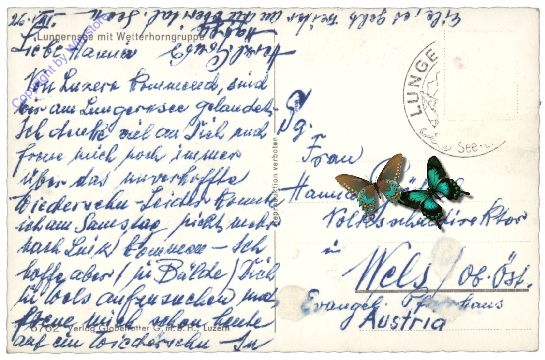 26. VII.
Lungernsee mit Wetterhorngruppe
Liebe Hanna
Von Luzern kommend, sind
wir am Lungernsee gelandet.
Ich denke viel an Dich und
freue mich noch immer
über das unverhoffte
Wiedersehn - Leider konnte
ich am Samstag nicht mehr
nach Linz kommen - Ich
hoffe aber (in Bälde) Dich
in Wels aufzusuchen und
freue mich schon heute
auf ein Wiedersehn
6762 Verlag Globetrotter G. m. b. H., Luzern
Reproduktion verboten
Copyright by
LUNGE
See
Frau
Hanna
Volksschuldirektor
in
Wels / Ob. Öst.
Evangel. Pfarrhaus
Austria